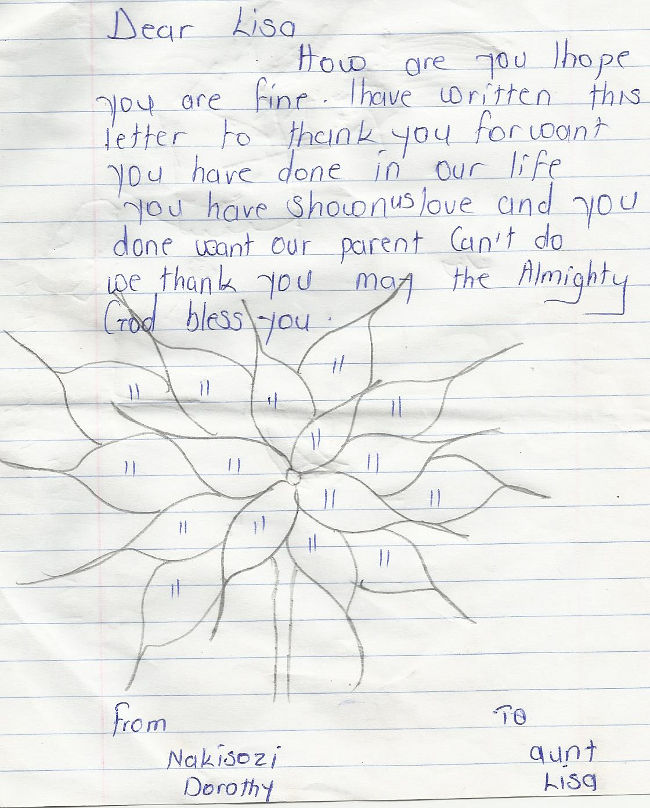 Dear Lisa
How are you I hope
you are fine. I have written this
letter to thank you for want
you have done in our life
you have shown us love and you
done want our parent Can't do
we thank you may the Almighty
God bless you.
11 11 11 11 11
11 11 11 11 11
11 11 11 11 11
11
From To
Nakisozi aunt
Dorothy Lisa